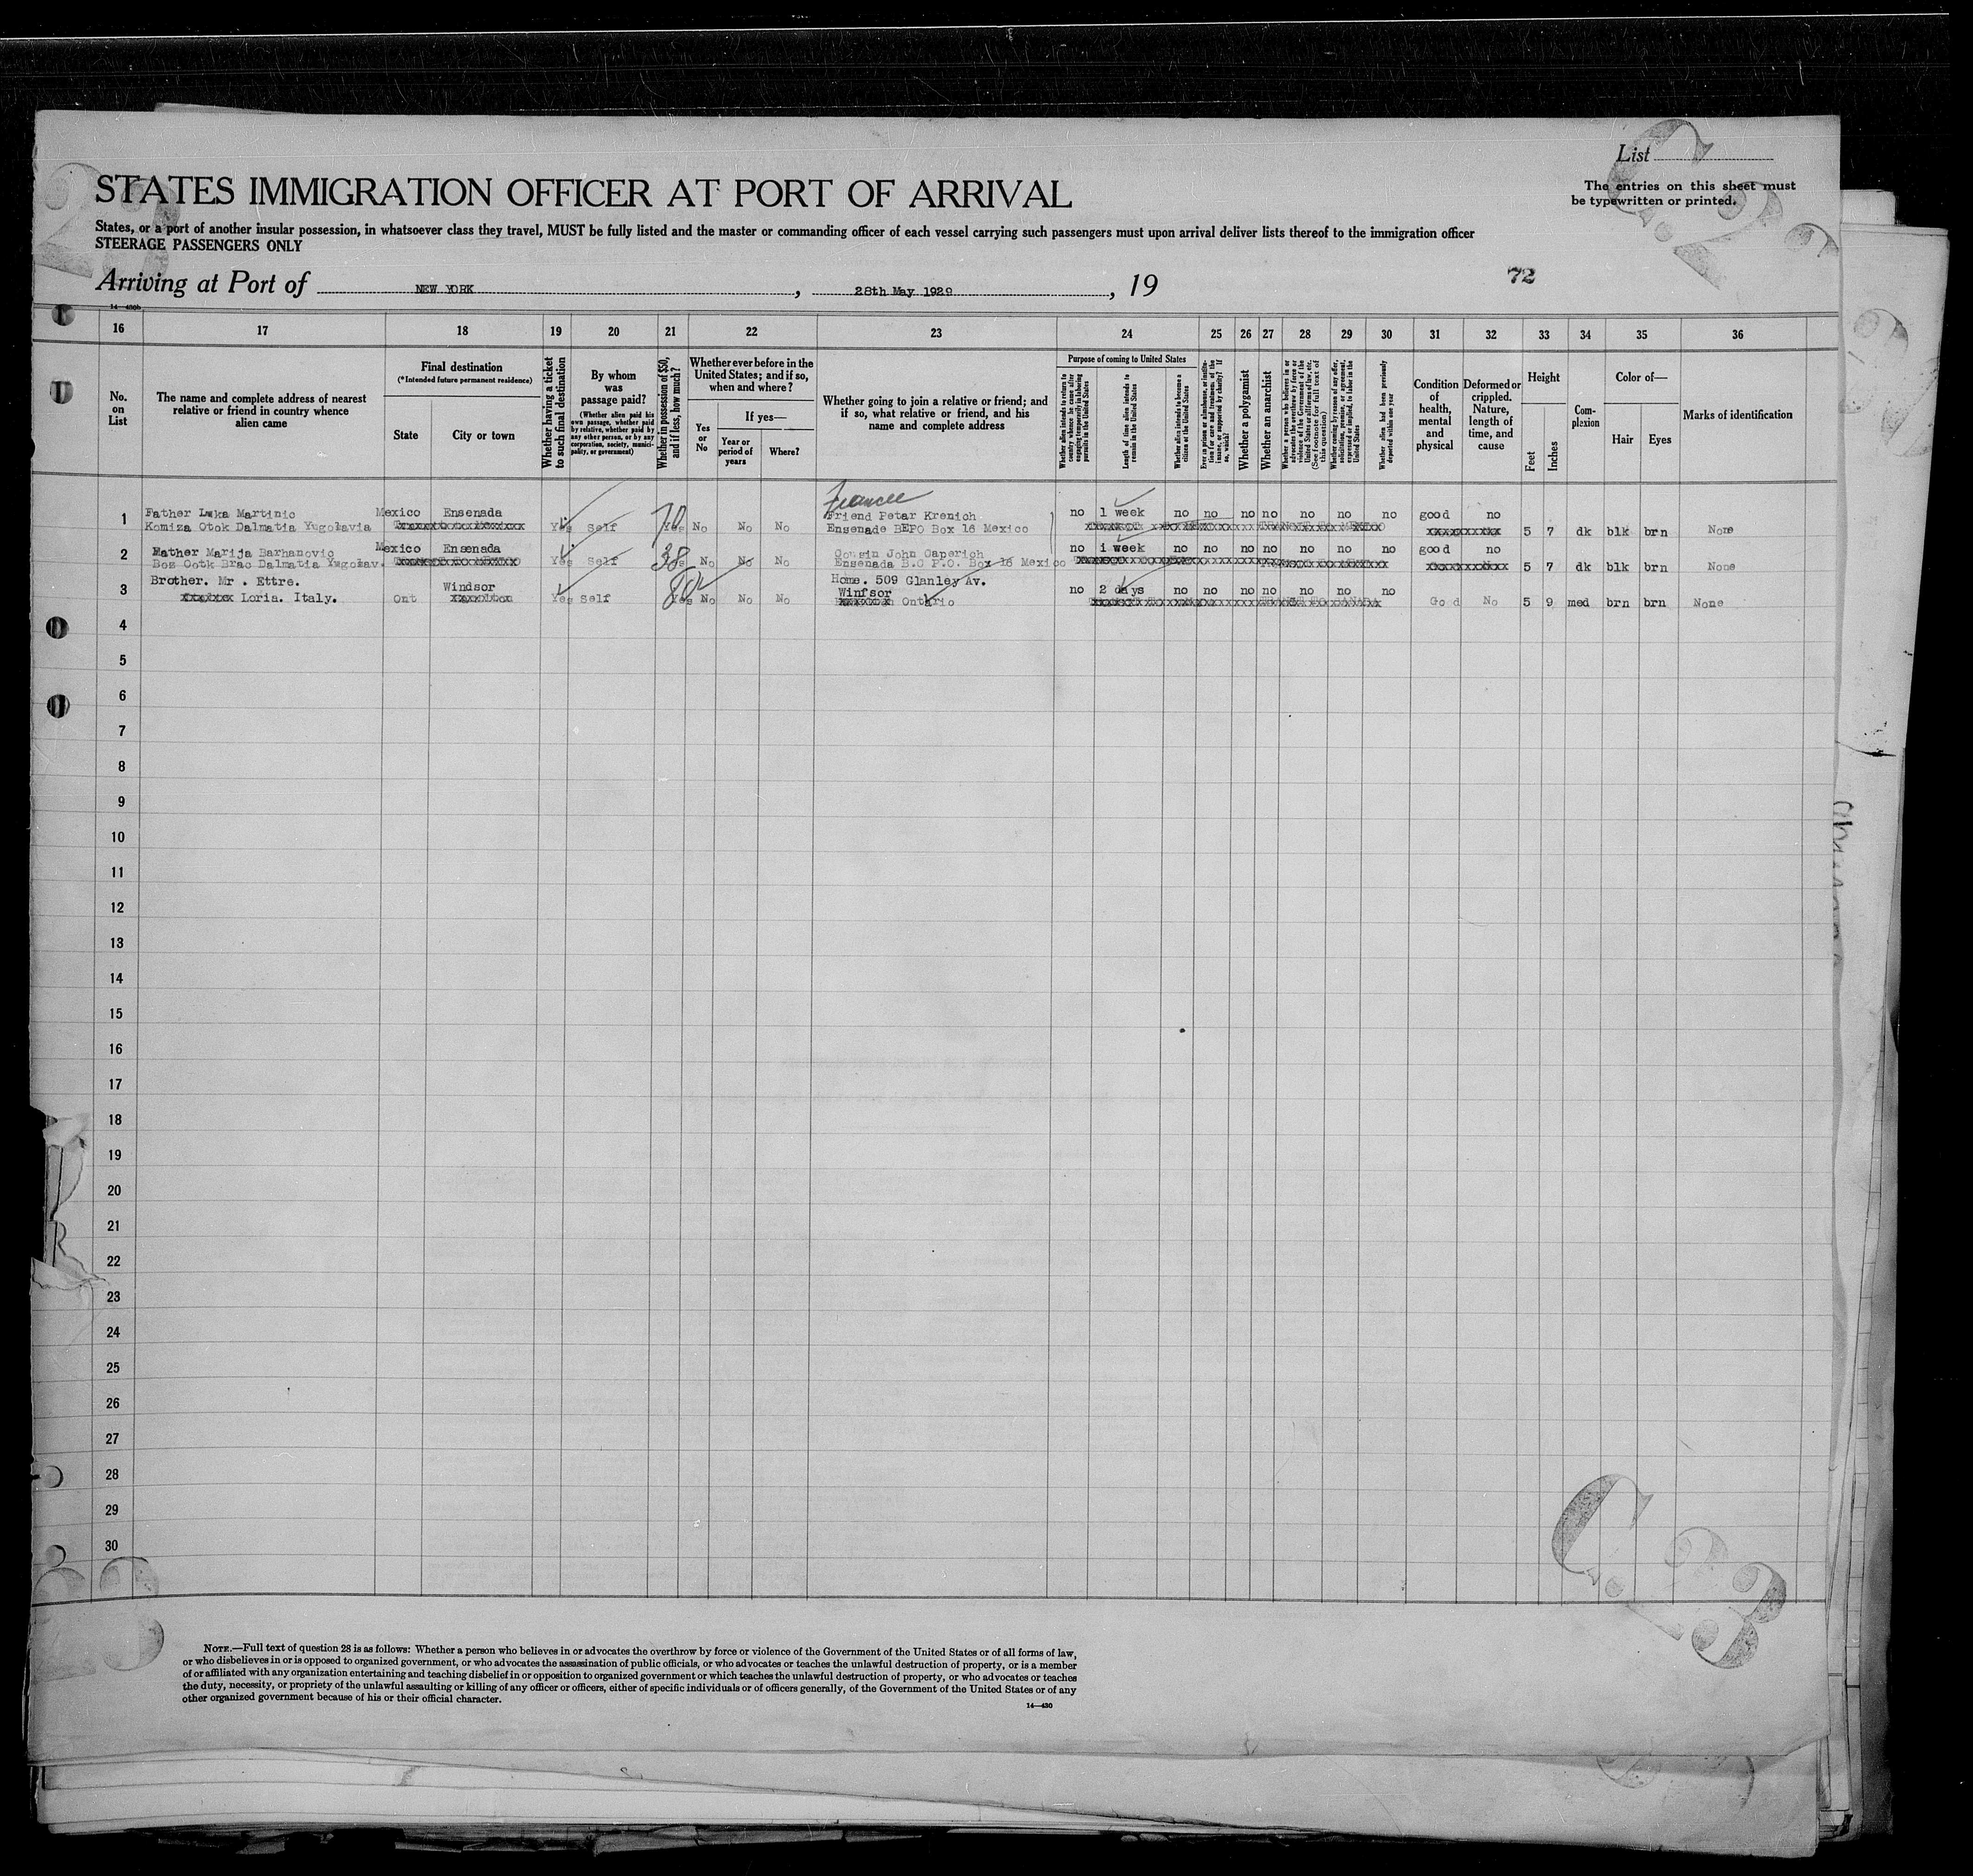 List
The entries on this sheet must
be typewritten or printed.
STATES IMMIGRATION OFFICER AT PORT OF ARRIVAL
States, or a port of another insular possession, in whatsoever class they travel, MUST be fully listed and the master or commanding officer of each vessel carrying such passengers must upon arrival deliver lists thereof to the immigration officer
STEERAGE PASSENGERS ONLY
Arriving at Port of NEW YORK, 28th May 1929, 19
72
14—430b
16 17 18 19 20 21 22 23 24 25 26 27 28 29 30 31 32 33 34 35 36
No. on List
The name and complete address of nearest
relative or friend in country whence
alien came
Final destination
(*Intended future permanent residence)
State
City or town
Whether having a ticket
to such final destination
By whom
was
passage paid?
(Whether alien paid his
own passage, whether paid
by relative, whether paid by
any other person, or by any
corporation, society, munici-
pality, or government)
Whether in possession of $50,
and if less, how much?
Whether ever before in the
United States; and if so,
when and where?
Yes or No
If yes—
Year or
period of
years
Where?
Whether going to join a relative or friend; and
if so, what relative or friend, and his
name and complete address
Purpose of coming to United States
Whether alien intends to return to
country whence he came after
engaging temporarily in laboring
pursuits in the United States
Length of time alien intends to
remain in the United States
Whether alien intends to become a
citizen of the United States
Ever in prison or almshouse, or institu-
tion for care and treatment of the
insane, or supported by charity? If
so, which?
Whether a polygamist
Whether an anarchist
Whether a person who believes in or
advocates the overthrow by force or
violence of the Government of the
United States or all forms of law, etc.
(See footnote for full text of
this question)
Whether coming by reason of any offer,
solicitation, promise, or agreement,
expressed or implied, to labor in the
United States
Whether alien had been previously
deported within one year
Condition
of
health,
mental
and
physical
Deformed or
crippled.
Nature,
length of
time, and
cause
Height
Feet
Inches
Com-
plexion
Color of—
Hair
Eyes
Marks of identification
Fiancee
1 Father Luka Martinic Mexico Ensenada Friend Petar Krenich no 1 week no no no no no no no good no
Komiza Otok Dalmatia Yugoslavia Yes Self 70 Yes No No No Ensenade BEPO Box 16 Mexico 5 7 dk blk brn None
2 Mather Marija Barhanovic Mexico Ensenada Cousin John Caperich no 1 week no no no no no no no good no
Boz Ootk Brac Dalmatia Yugoslav. Yes Self 38 No No No Ensenada B.C P.O. Box 16 Mexico 5 7 dk blk brn None
3 Brother. Mr . Ettre. Windsor Home. 509 Glanley Av.
Winfsor no 2 days no no no no no no no
Loria. Italy. Ont Yes Self 80 Yes No No No Ontario Go d No 5 9 med brn brn None
4
5
6
7
8
9
10
11
12
13
14
15
16
17
18
19
20
21
22
23
24
25
26
27
28
29
30
C. 23
NOTE.—Full text of question 28 is as follows: Whether a person who believes in or advocates the overthrow by force or violence of the Government of the United States or of all forms of law,
or who disbelieves in or is opposed to organized government, or who advocates the assassination of public officials, or who advocates or teaches the unlawful destruction of property, or is a member
of or affiliated with any organization entertaining and teaching disbelief in or opposition to organized government or which teaches the unlawful destruction of property, or who advocates or teaches
the duty, necessity, or propriety of the unlawful assaulting or killing of any officer or officers, either of specific individuals or of officers generally, of the Government of the United States or of any
other organized government because of his or their official character.
14—430